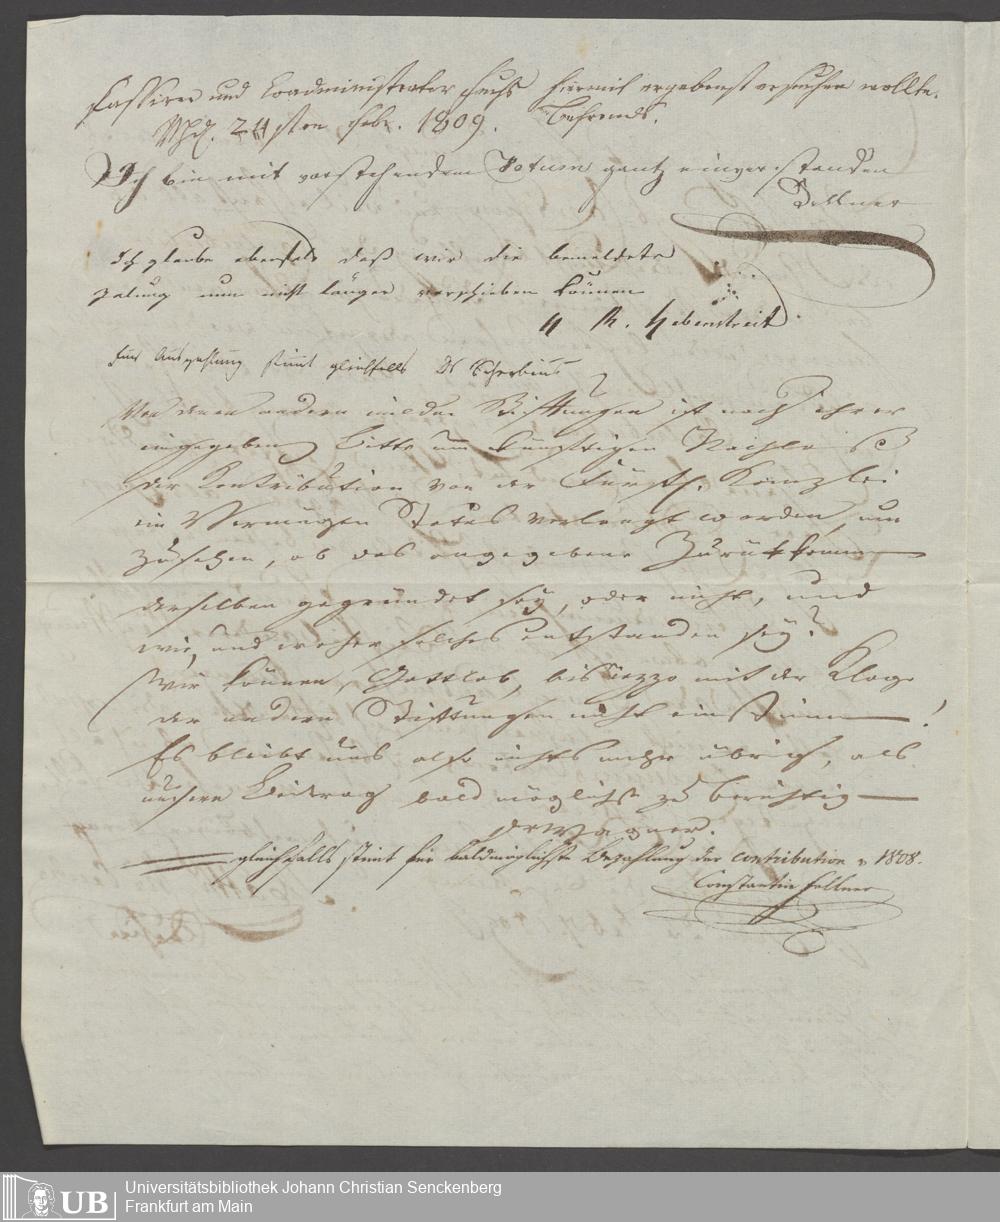 Cassirer und Coadministrator Fuchs hiermit ergebenst ersuchen wollte.
24sten Febr. 1809. Behrends.
Ich bin mit vorstehendem Votum gantz einverstanden
Dellner
Ich glaube ebenfals daß wir die bemeldete
zalung nun nicht länger verschieben können
Hebenstreit
Für Auszahlung stimt gleichfalls Dr Scherbius
Von denen andern milden Stifftungen ist nach ihrer
eingegebenen Bitte um künftigen Nachlaß
der Contribution von der Fürstl. Kanzlei
ein Vermögen Status verlangt worden, um
zusehen, ob das angegebene Zurükkommen
derselben gegründet sey, oder nicht, und
wie, und woher solches entstanden sey?
Wir können, Gottlob, bis jezzo mit der Klage
der andern Stifftungen nicht einstimmen!
Es bleibt uns also nichts mehr übrig, als
unsern Beitrag bald möglichst zu berichtigen
Dr Wagner.
gleichfalls stimt für baldmöglichste Bezahlung der Contribution v 1808.
Constantin Fellner
UB Universitätsbibliothek Johann Christian Senckenberg
Frankfurt am Main